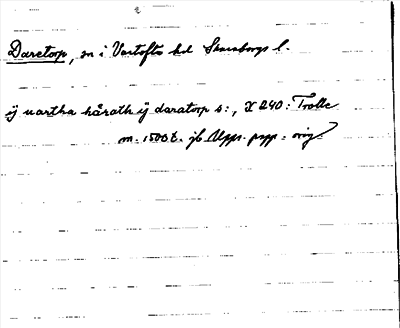 Daretorp, sn i Vartofta hd Skaraborgs l.
ij uartha hårath ij daratorp s:, X 240: Trolle
m. 1500 t. jb Upps. psgr. orig.